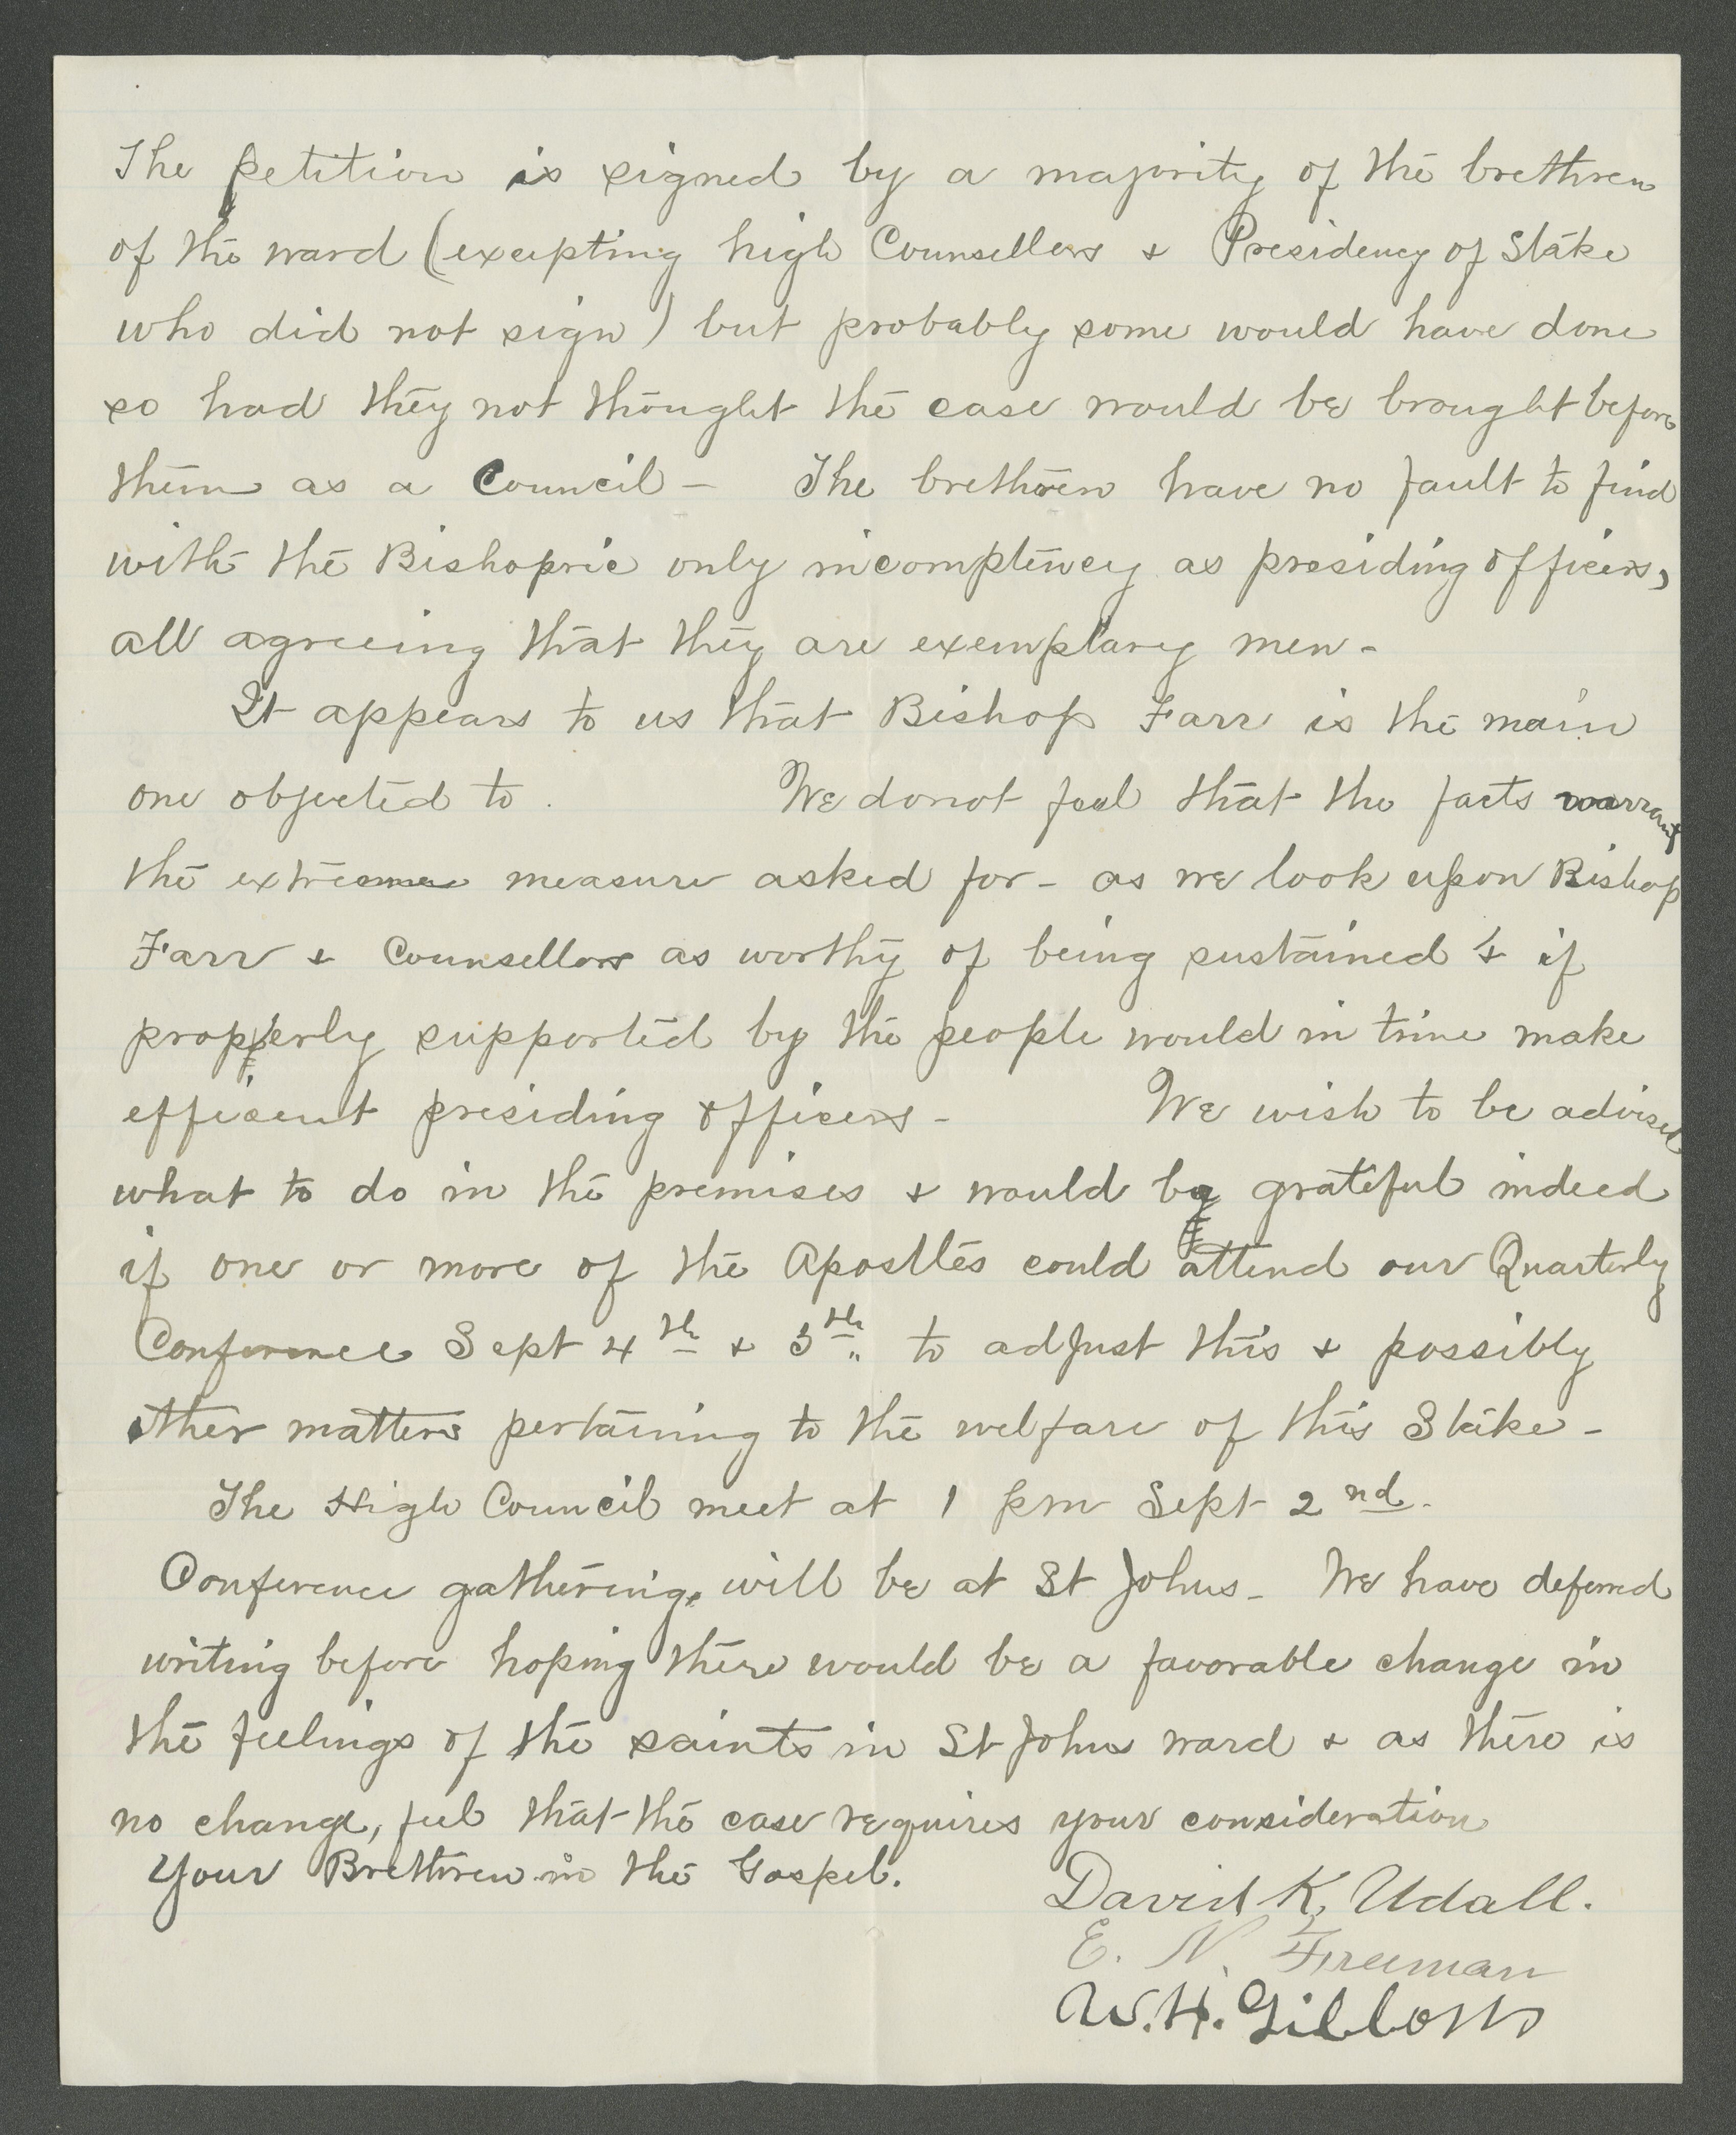 The petition is signed by a majority of the brethren
of the ward (excepting high Counsellors & Presidency of Stake
who did not sign) but probably some would have done
so had they not thought the case would be brought before
them as a Council - The brethren have no fault to find
with the Bishopric only incomptency as presiding officers,
all agreeing that they are exemplary men -
It appears to us that Bishop Farr is the main
one objected to. We do not feel that the facts warrant
the extreme measure asked for - as we look upon Bishop
Farr & Counsellors as worthy of being sustained & if
properly supported by the people would in time make
efficent presiding officers - We wish to be advised
what to do in the premises & would be grateful indeed
if one or more of the Apostles could attend our Quarterly
Conference Sept 4th & 5th to adjust this & possibly
other matters pertaining to the welfare of this Stake -
The High Council meet at 1 pm Sept 2nd.
Conference gathering, will be at St Johns - We have deferred
writing before hoping there would be a favorable change in
the feelings of the saints in St Johns ward & as there is
no change, feel that the case requires your consideration
Your Brethren in the Gospel.
David K. Udall.
E. N. Freeman
W. H. Gibbons